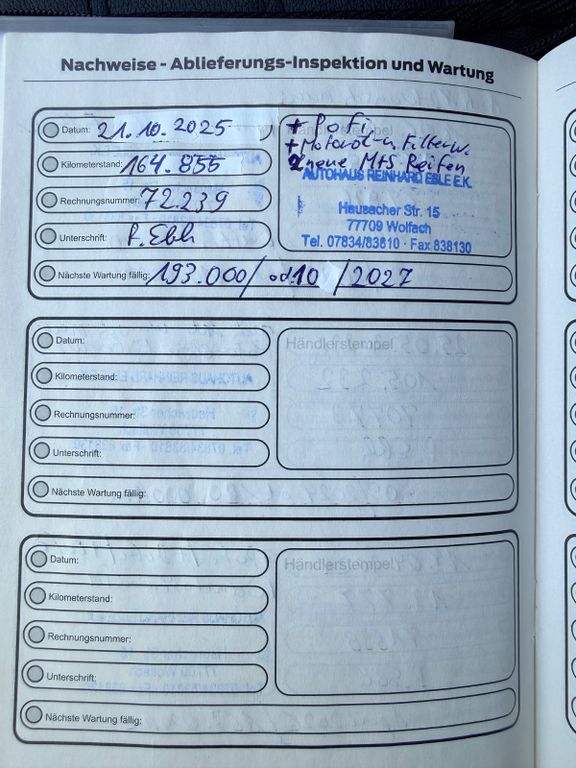 Nachweise - Ablieferungs-Inspektion und Wartung
Datum: 21.10.2025
Kilometerstand: 164.855
Rechnungsnummer: 72.239
Unterschrift:
+ PoFi
+ Motoröl-u. Filterw.
2 neue M+S Reifen
AUTOHAUS REINHARD EBLE E.K.
Hausacher Str. 15
77709 Wolfach
Tel. 07834/83810 · Fax 838130
Nächste Wartung fällig: 193.000/ od. 10 / 2027
Datum:
Kilometerstand:
Rechnungsnummer:
Unterschrift:
Händlerstempel
Nächste Wartung fällig:
Datum:
Kilometerstand:
Rechnungsnummer:
Unterschrift:
Händlerstempel
Nächste Wartung fällig: